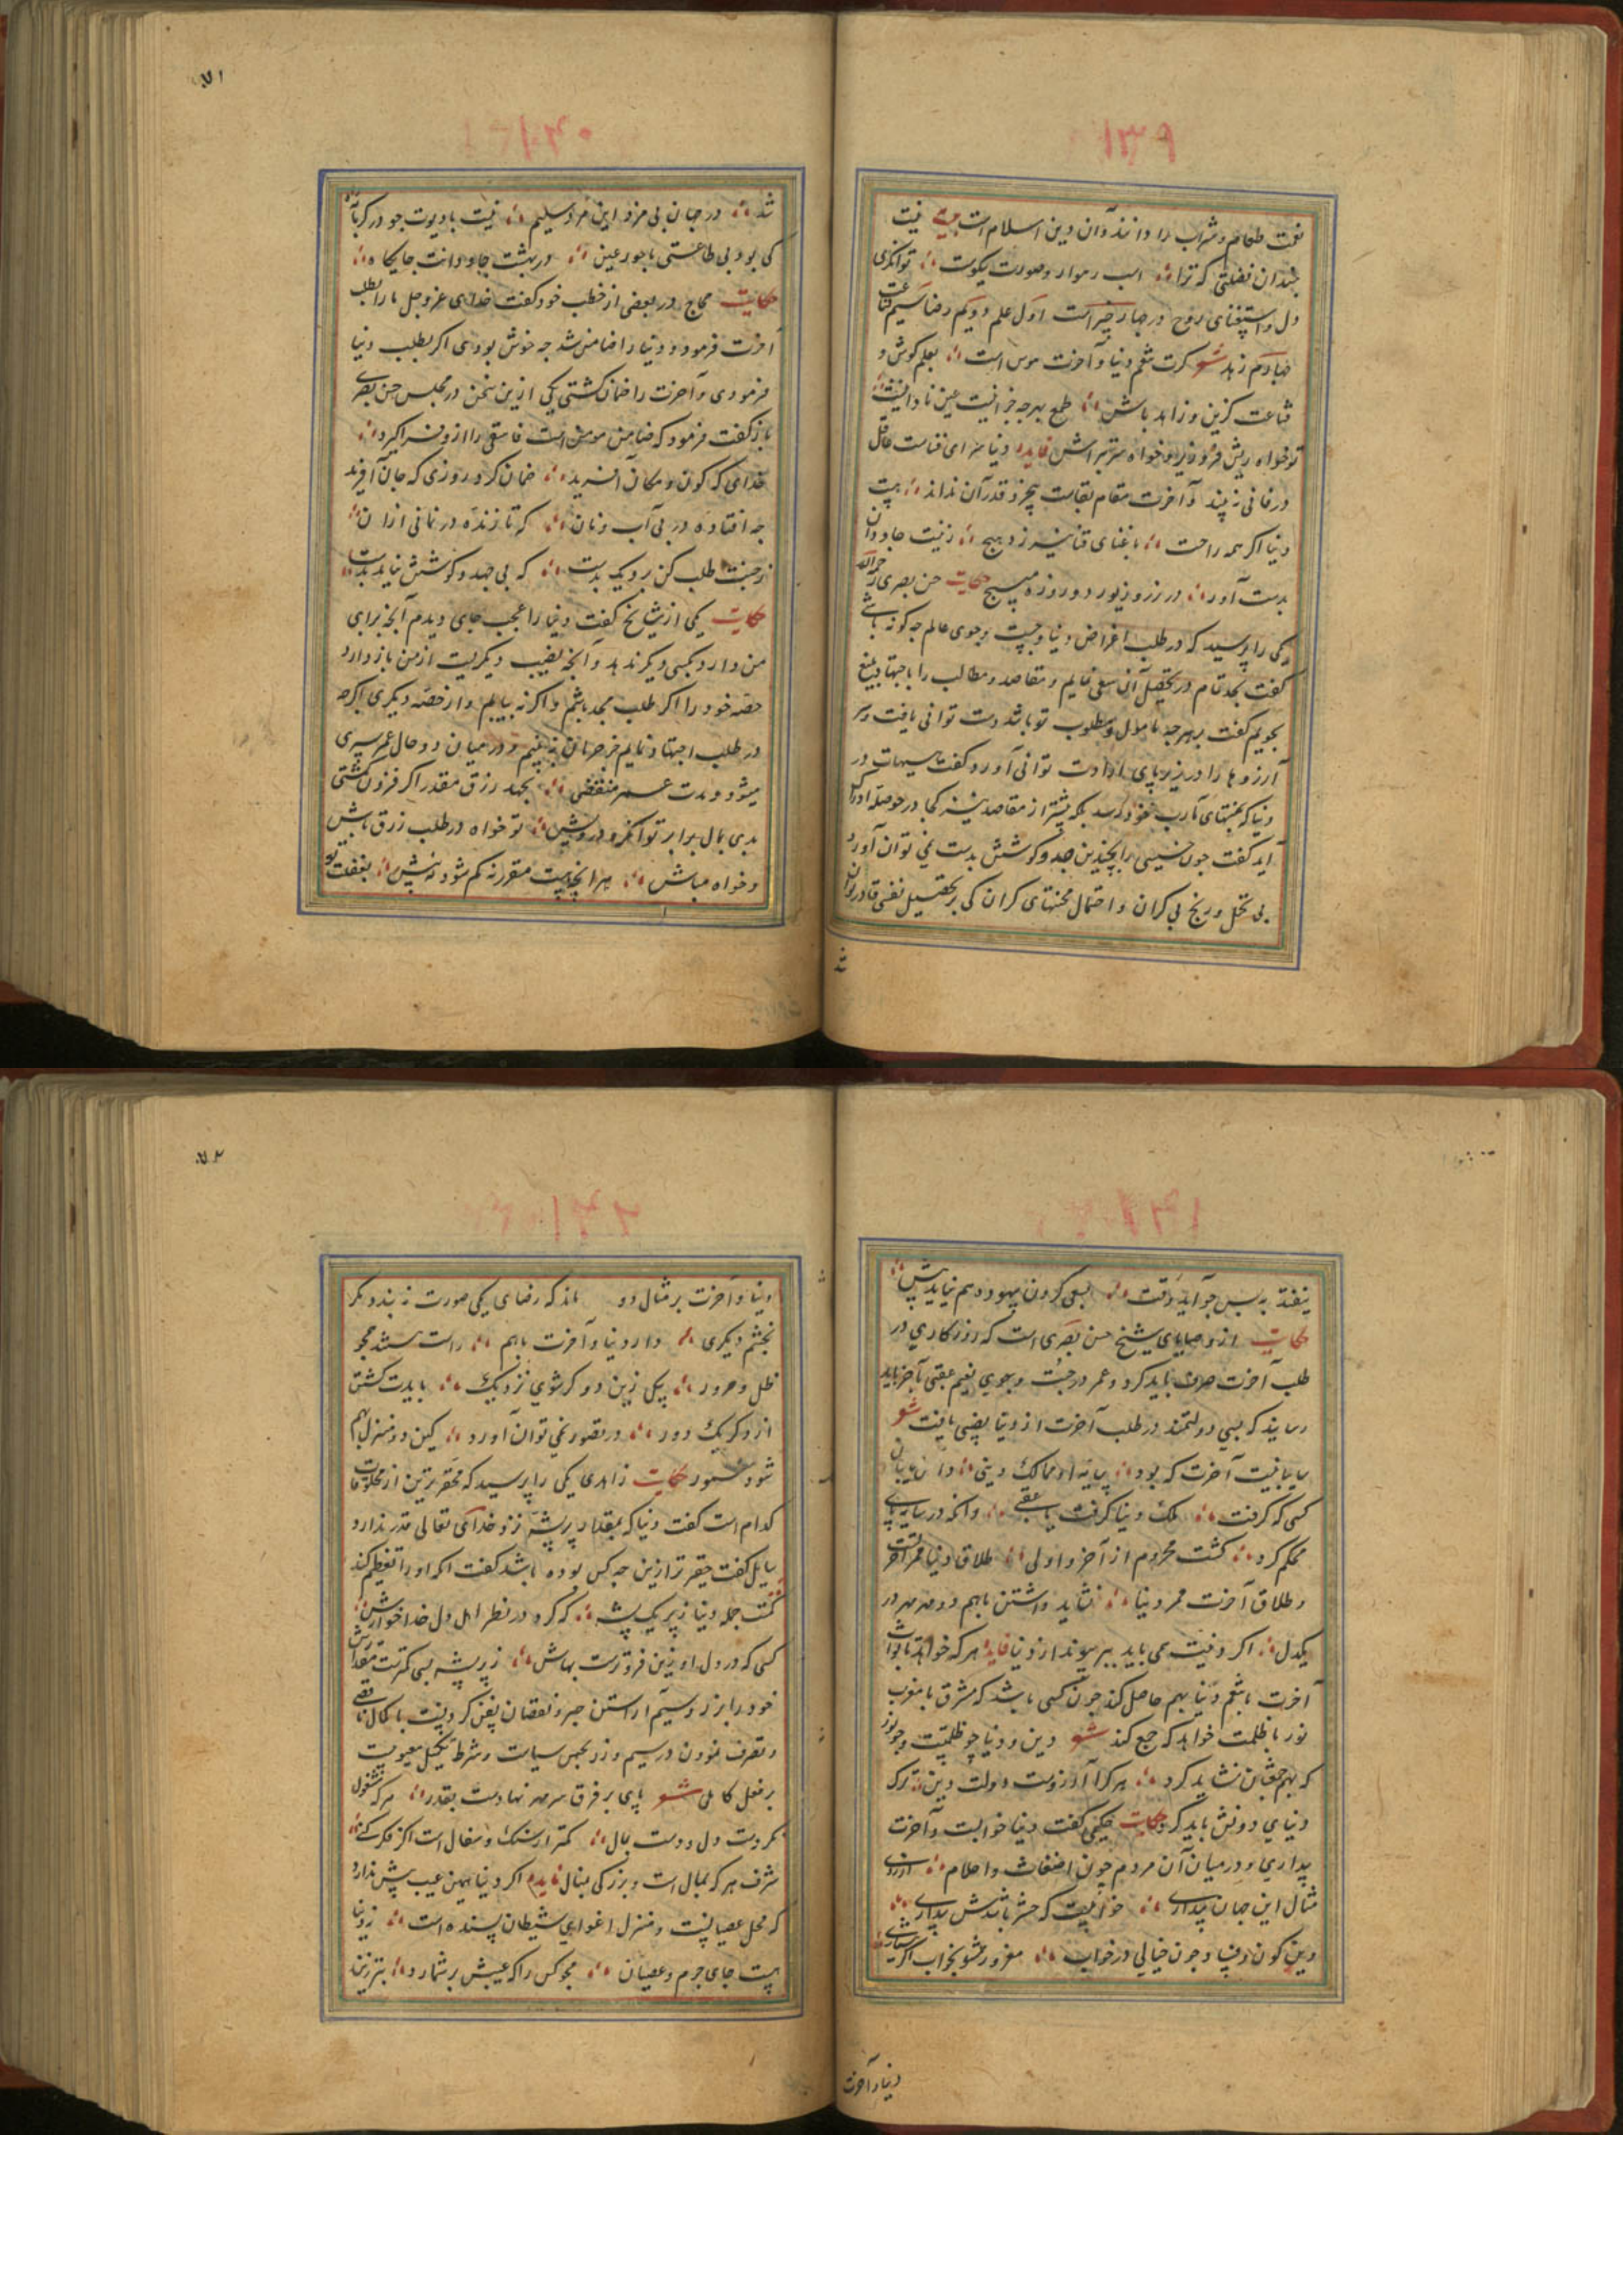 ۱۳۹
نعمت طعام و شراب را دانند و آن دین اسلام است بیت نیست
چندان فضیلتی که ترا اسب رهوار و صورت نیکوست توانگری
دل و استغنای روح در چهار چیز است اول علم دویم رضا سیم قناعت
چهارم زهد شعر گرت نعیم دنیا و آخرت هوس است بعلم کوش و
قناعت گزین و زاهد باش طمع بهرچه جز اینست عین نادانیست
تو خواه ریش فرو خواه سرتراش فایده دنیا سرای فناست عاقل
در فانی نه بیند و آخرت مقام بقاست بیخرد قدر آن نداند بیت
دنیا اگر همه راحت با غنای قناعت نیرزد بهیچ زینت جاودان
بدست آور در زر و زیور دو روزه مپیچ حکایت حسن بصری رحمه الله
یکی را پرسید که در طلب اغراض دنیا و جست و جوی عالم چه گونه باشی
گفت بجد تمام در تحصیل آن سعی نمایم و مقاصد و مطالب را باجتهاد بلیغ
بجویم گفت بهرچه مامول و مطلوب تو باشد دست توانی یافت و سر
آرزوها را در زیر پای ارادت توانی آورد گفت هیهات در
دنیا که بمنتهای مآرب خود رسد بلکه بیشتر از مقاصد بشر کجا در حوصله ادراک
آید گفت چون خسیسی را بچندین جد و کوشش بدست نمی توان آورد
بی تحمل و رنج بی کران و احتمال محنتهای گران کی بر تحصیل نفیسی قادر توان
شد
۷۱
۱۴۰
شد در جهان بی مزد این مرد سلیم نیست با دیوت جو در کربا
کی بود بی طاعتی با حور عین در بهشت جاودانت جایگاه
حکایت حجاج در بعضی از خطب خود گفت خدای عز و جل ما را بطلب
آخرت فرمود و دنیا را ضامن شد چه خوش بودی اگر بطلب دنیا
فرمودی و آخرت را ضمان گشتی یکی از این سخن در مجلس حسن بصری
باز گفت فرمود که ضامن مومن است فاسقی را از و فراگیرد
خدای که کون و مکان آفرید ضمان کرد روزی که جان آفرید
چه افتاده در پی آب و نان که تا زنده در نمانی از آن
ز جنت طلب کن برو یک بدست که بی جهد و کوشش نیاید بدست
حکایت یکی از مشایخ گفت دنیا را عجب جای دیدم آنچه برای
من دارد بکسی دیگر ندهد و آنچه نصیب دیگریست از من باز دارد
حصه خود را اگر طلب بجد باشم و اگر نه بیابم و از حصه دیگری اگرچه
در طلب اجتهاد نمایم جز حرمان نه بینم و در میان دو حال عمر سپری
میشود و مدت عمر منقضی بجد رزق مقدر اگر فزون گشتی
بدی بمال برابر توانگر و درویش تو خواه در طلب رزق باش
و خواه مباش هر آنچه هست مقرر نه کم شود نه بیش بغفلت تو
۱۴۱
نیفتد به پس چو آید وقت بسعی کردن بیهوده هم نیاید پیش
حکایت از وصایای شیخ حسن بصری است که روزگاری در
طلب آخرت صرف باید کرد و عمر در جست و جوی نعیم عقبی بآخر باید
رسانید که بسی دولتمند در طلب آخرت از دنیا نصیبی یافت شعر
کسی که گرفت ملک دنیا گرفت با عقبی و آنکه در سایه پای
محکم کرد گشت محروم از آخر و اولی طلاق دنیا مهر آخرت
و طلاق آخرت مهر دنیا نشاید داشتن باهم دو مهر در
یکدل اگر دینت می باید ببر پیوند از دنیا فایده هر که خواهد تا ثواب
آخرت با نعیم دنیا بهم حاصل کند چون کسی باشد که مشرق با مغرب
نور با ظلمت خواهد که جمع کند شعر دین و دنیا چو ظلمتست و چو نور
که بهم جمعشان نشاید کرد هر کرا آرزوست دولت دین ترک
دنیای دونش باید کرد حکایت حکیمی گفت دنیا خوابست و آخرت
بیداری و در میان آن مردم چون اضغاث و احلام از روی
مثال این جهان پنداری خوابیست که حشر باشدش بیداری
وین کون و فساد چون خیالی در خواب مغرور مشو بخواب اگر هشیاری
دنیا و آخرت
۷۲
۱۴۲
دنیا و آخرت بر مثال دو ماند که رضای یکی صورت نه بندد مگر
بخشم دیگری دار دنیا و آخرت باهم راست هستند همچو
ظل و حرور بیکی زین دو گر شوی نزدیک بایدت گشتن
از دگر یک دور در تصور نمی توان آورد کین دو منزل بهم
شود معمور حکایت زاهدی یکی را پرسید که محقرترین از مخلوقات
کدام است گفت دنیا که بمقدار پر پشه نزد خدای تعالی قدر ندارد
سایل گفت حقیرتر ازین چه کس بوده باشد گفت آنکه او را تعظیم کند
کمست جمله دنیا ز پر یک پشه که کرد در نظر اهل دل خدا خوارش
کسی که در دل او زین فروترست بهاش ز پر پشه بسی کمترست مقدارش
خود را بزر و سیم آراستن جبر و نقصان بفن کردنست با کمال ناقصی
و تصرف نمودن در سیم و زر بحسن سیاست و شرط تکمیل معیوبیست
بر فعل کاملی شعر پای بر فرق سر مهر نهادست بقدر هر که مشغول
نکردست دل و دست بمال کمتر از سنگ و سفال است اگر فکر کنی
شرف هر که بمال است و بزرگی بمنال فایده اگر دنیا همین عیب بیش ندارد
که محل عصیانست و منزل اغوای شیطان بسنده است ز دنیا
هست جای جرم و عصیان مجو کس را که عیبش بر شمارد بتر زین